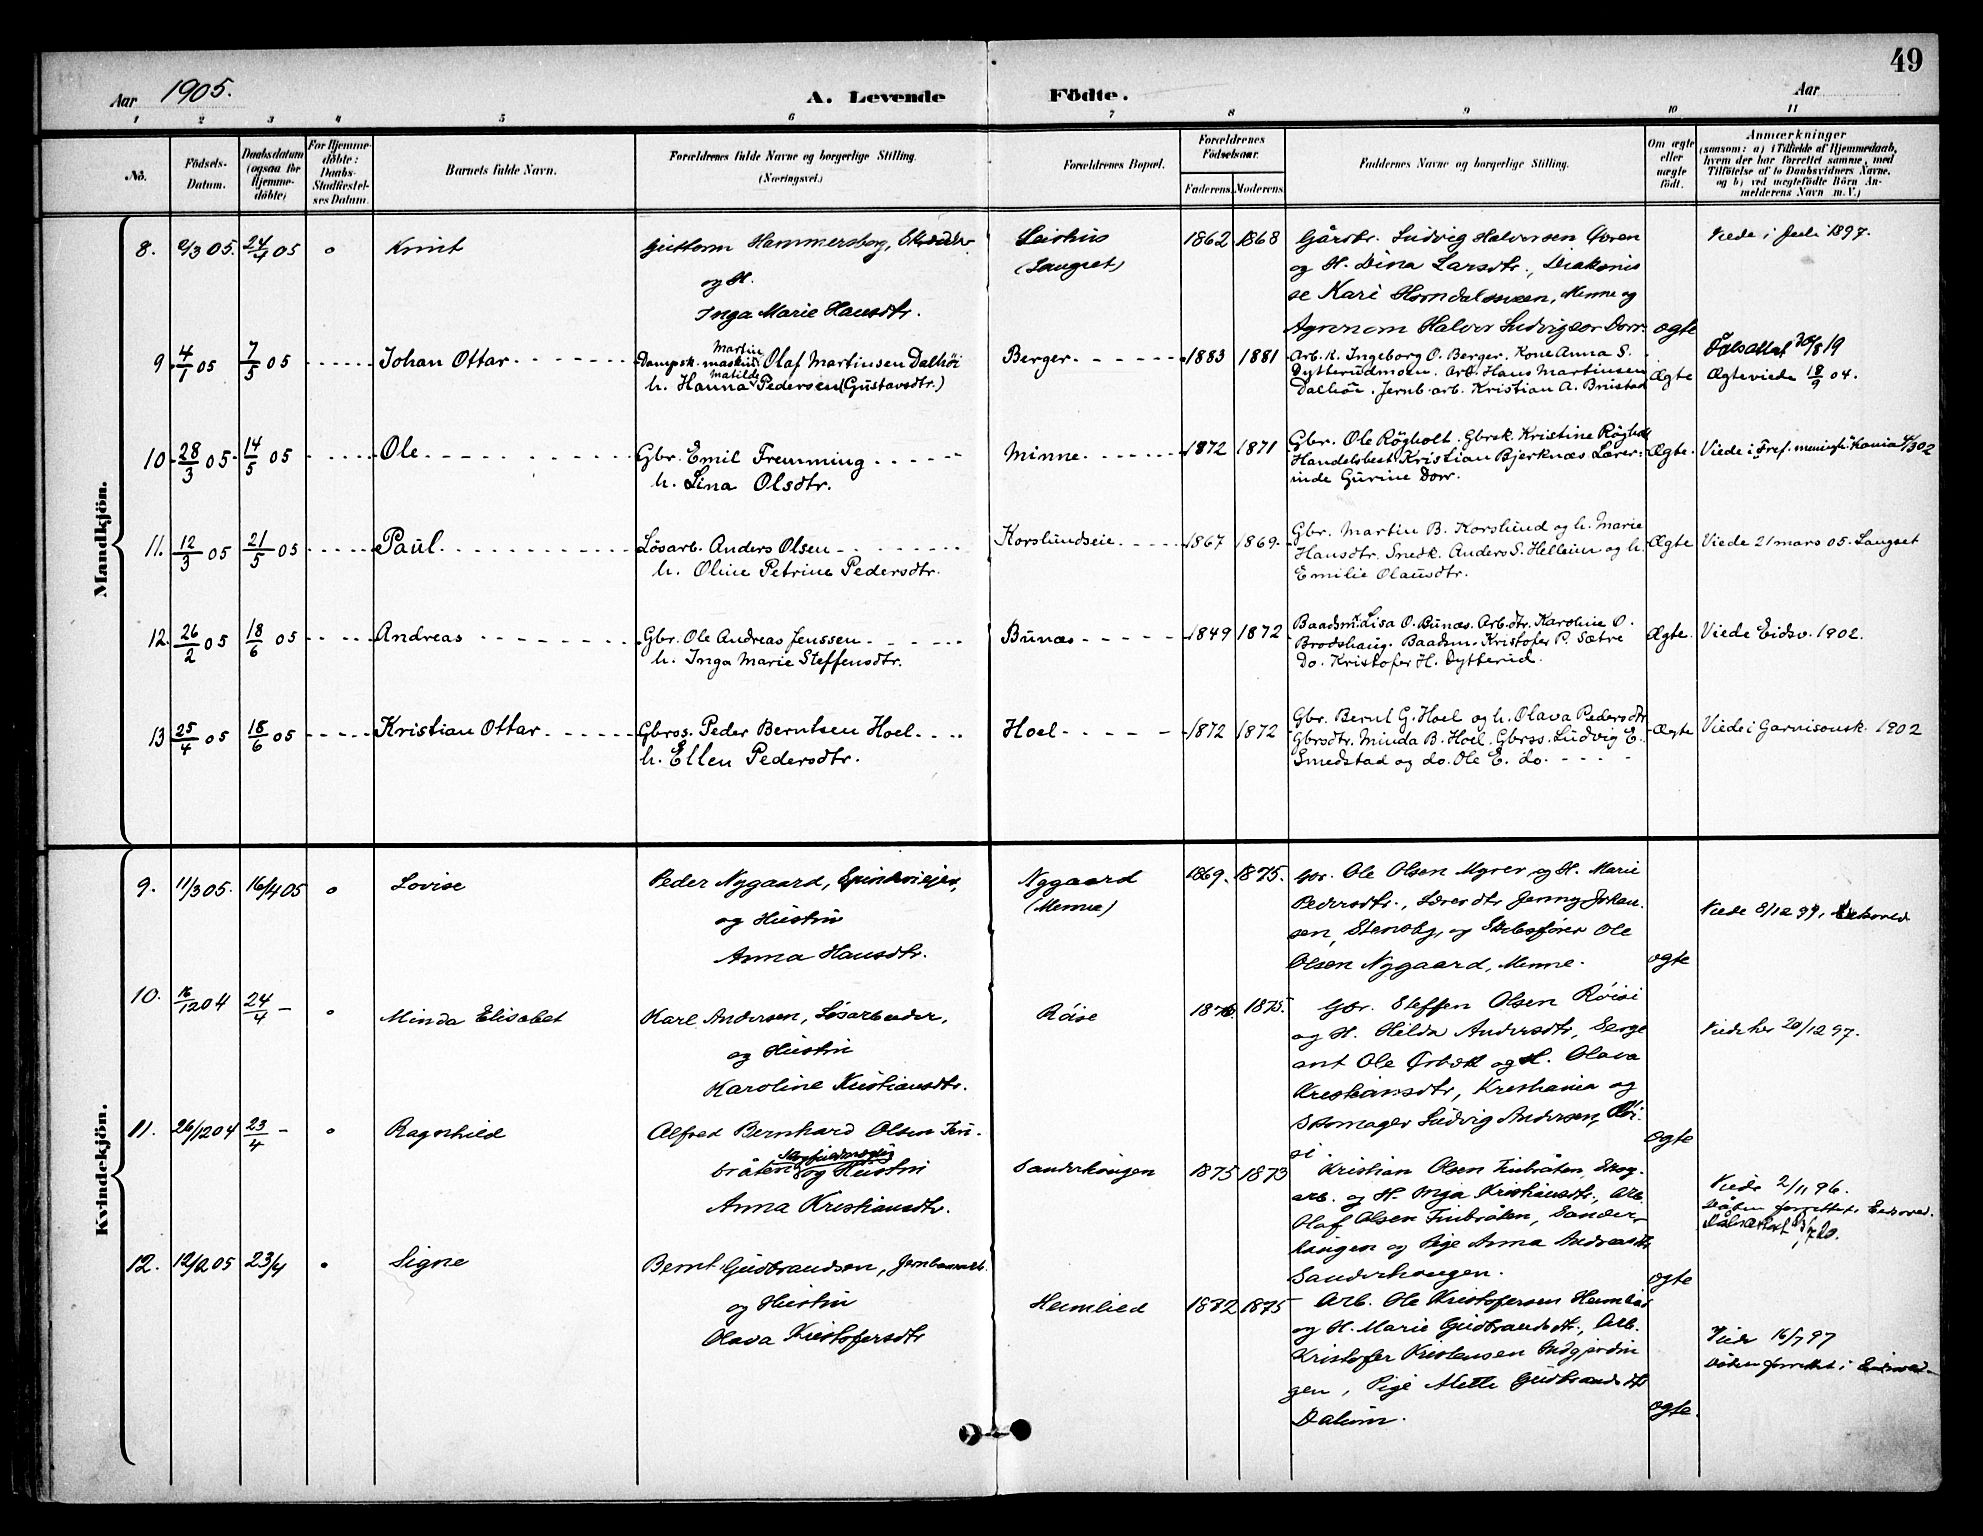 49
Aar 1905.
A. Levende Födte.
Aar
1 2 3 4 5 6 7 8 9 10 11
No.
Födsels-Datum.
Daabsdatum (ogsaa for Hjemme-döbte)
For Hjemme-döbte: Daabs-Stadfæstel-ses Datum.
Barnets fulde Navn.
Forældrenes fulde Navne og borgerlige Stilling. (Næringsvei.)
Forældrenes Bopæl.
Forældrenes Födselsaar.
Faderens. Moderens.
Faddernes Navne og borgerlige Stilling.
Om ægte eller uægte födt.
Anmærkninger
(saasom: a) i Tilfælde af Hjemmedaab, hvem der har forrettet samme, med Tilföielse af to Daabsvidners Navne, og b) ved uægtefödte Börn An-melderens Navn m. V.)
Mandkjön.
8. 2/3 05. 24/4 05 o Knut
Guttorm Hammersborg,
og H.
Inga Marie Hansdtr.
(Langset)
1862 1868
Gårdbr. Ludvig Halvorsen Dorren
og H. Dina Larsdtr., Diakonis
se Kari Horndalsveen, Minne og
Agronom Halvor Ludvigsen Dorr.
ægte
Viede i Juli 1897.
9 4/1 05 7/5 05 Johan Ottar
Martin
Dampsk. maskin. Olaf Martinsen Dalhöi
Matilde
h. Hanna Pedersen (Gustavsdtr.)
Berger.
1883 1881
Arb. k. Ingeborg O. Berger. Kone Anna S.
Dytterudmoen. Arb. Hans Martinsen
Dalhöi. Jernb. arb. Kristian A. Brustad
Ægte
Ægteviede 18/9 04.
10 28/3 05 14/5 05 Ole
Gbr. Emil Fremming
h. Lina Olsdtr.
Minne.
1872 1871
Gbr. Ole Rögholt. Gbrsk. Kristine Rögholt
Handelsbest. Kristian Bjerknæs Lærer-
inde Gurine Dorr.
Ægte.
11. 12/3 05 21/5 05 Paul
Lösarb. Anders Olsen
h. Oline Petrine Pedersdtr.
Korslundseie.
1867 1869.
Gbr. Martin B. Korslund og h. Marie
Hansdtr. Snedk. Anders S. Helleim og h.
Emilie Olausdtr.
Ægte
Viede 21 mars 05. Langset
12. 26/2 05 18/6 05 Andreas
Gbr. Ole Andreas Jenssen
h. Inga Marie Steffensdtr.
Bunæs
1849 1872
Baadsm. Lisa O. Bunæs. Arb. dtr. Karoline O.
Brodshaug. Baadsm. Kristofer P. Sætre
Do. Kristofer H. Dytterud.
Ægte.
Viede Eidsv. 1902.
13 25/4 05 18/6 05 Kristian Ottar
Gbrss. Peder Berntsen Hoel
h. Ellen Pedersdtr.
Hoel
1872 1872
Gbr. Bernt G. Hoel og h. Olava Pedersdtr
Gbrsdtr. Minda B. Hoel. Gbrss. Ludvig E.
Smedstad og do. Ole E. do.
Ægte
Viede i Garnisonsk. 1902
Kvindekjön.
9. 11/3 05. 16/4 05 o Lovise
Peder Nygaard,
og Hustru
Anna Hansdtr.
Nygaard
(Minne)
1869. 1875.
Gbr. Ole Olsen Myrer og H. Marie
Pedersdtr., Lærerdtr. Jenny Johan-
sen, Stensby, og Skibsfører Ole
Olsen Nygaard, Minne.
ægte
Viede 8/12 99,
10. 16/12 04 24/4 - o Minda Elisabet
Karl Andersen, Løsarbeider,
og Hustru
Karoline Kristiansdtr.
Røise
1875.
Gbr. Steffen Olsen Røisi
og H. Hilda Andersdtr, Serge
ant Ole Ørbæk og H. Olava
Kristiansdtr, Kristiania og
Skomager Ludvig Andersen, Røi-
si.
ægte
Viede her 20/12 97.
11. 26/12 04 23/4 - o Ragnhild
Alfred Bernhard Olsen Fin-
bråten og Hustru
Anna Kristiansdtr.
Sanderhaugen
1875 1873
Kristian Olsen Finbråten, Skog-
arb. og H. Inga Kristiansdtr., Arb.
Olaf Olsen Finbråten, Sander-
haugen og Pige Anna Andersdtr
Sanderhaugen.
ægte
Viede 2/11 96.
Dåben forrettet i Eidsvold.
12. 12/2 05 23/4 o Signe
Bernt Gudbrandsen, Jernbanearb.
og Hustru
Olava Kristofersdtr
Hemlied
1872 1875
Arb. Ole Kristofersen Hemlied
og H. Marie Gudbrandsdtr., Arb.
Kristofer Kristensen
gen, Pige Mette Gudbrandsdtr
Dalum.
ægte.
Viede 16/7 97
Dåben forrettet i Eidsvold